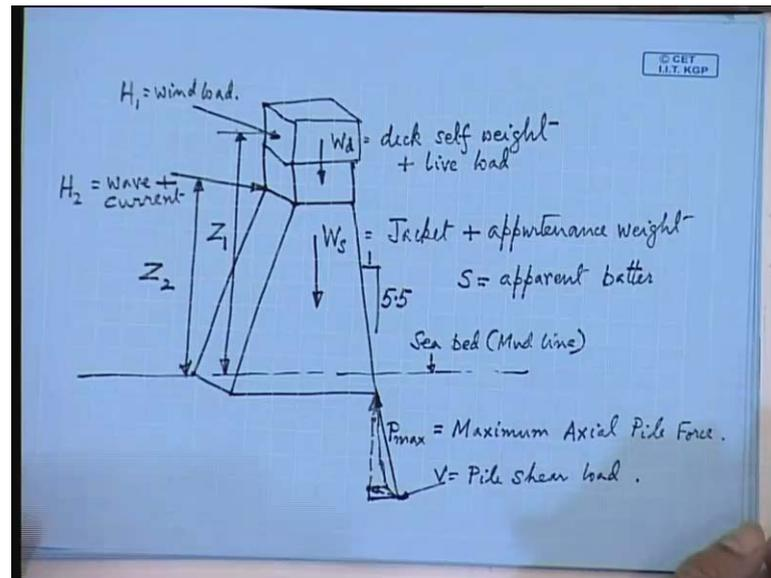 © CET
I.I.T. KGP
H₁ = wind load.
Wd = deck self weight
+ live load
H₂ = wave +
current
Z₁
Z₂
Ws = Jacket + appurtenance weight
1
5.5
S = apparent batter
Sea bed (Mud line)
Pmax = Maximum Axial Pile Force.
V = Pile shear load.